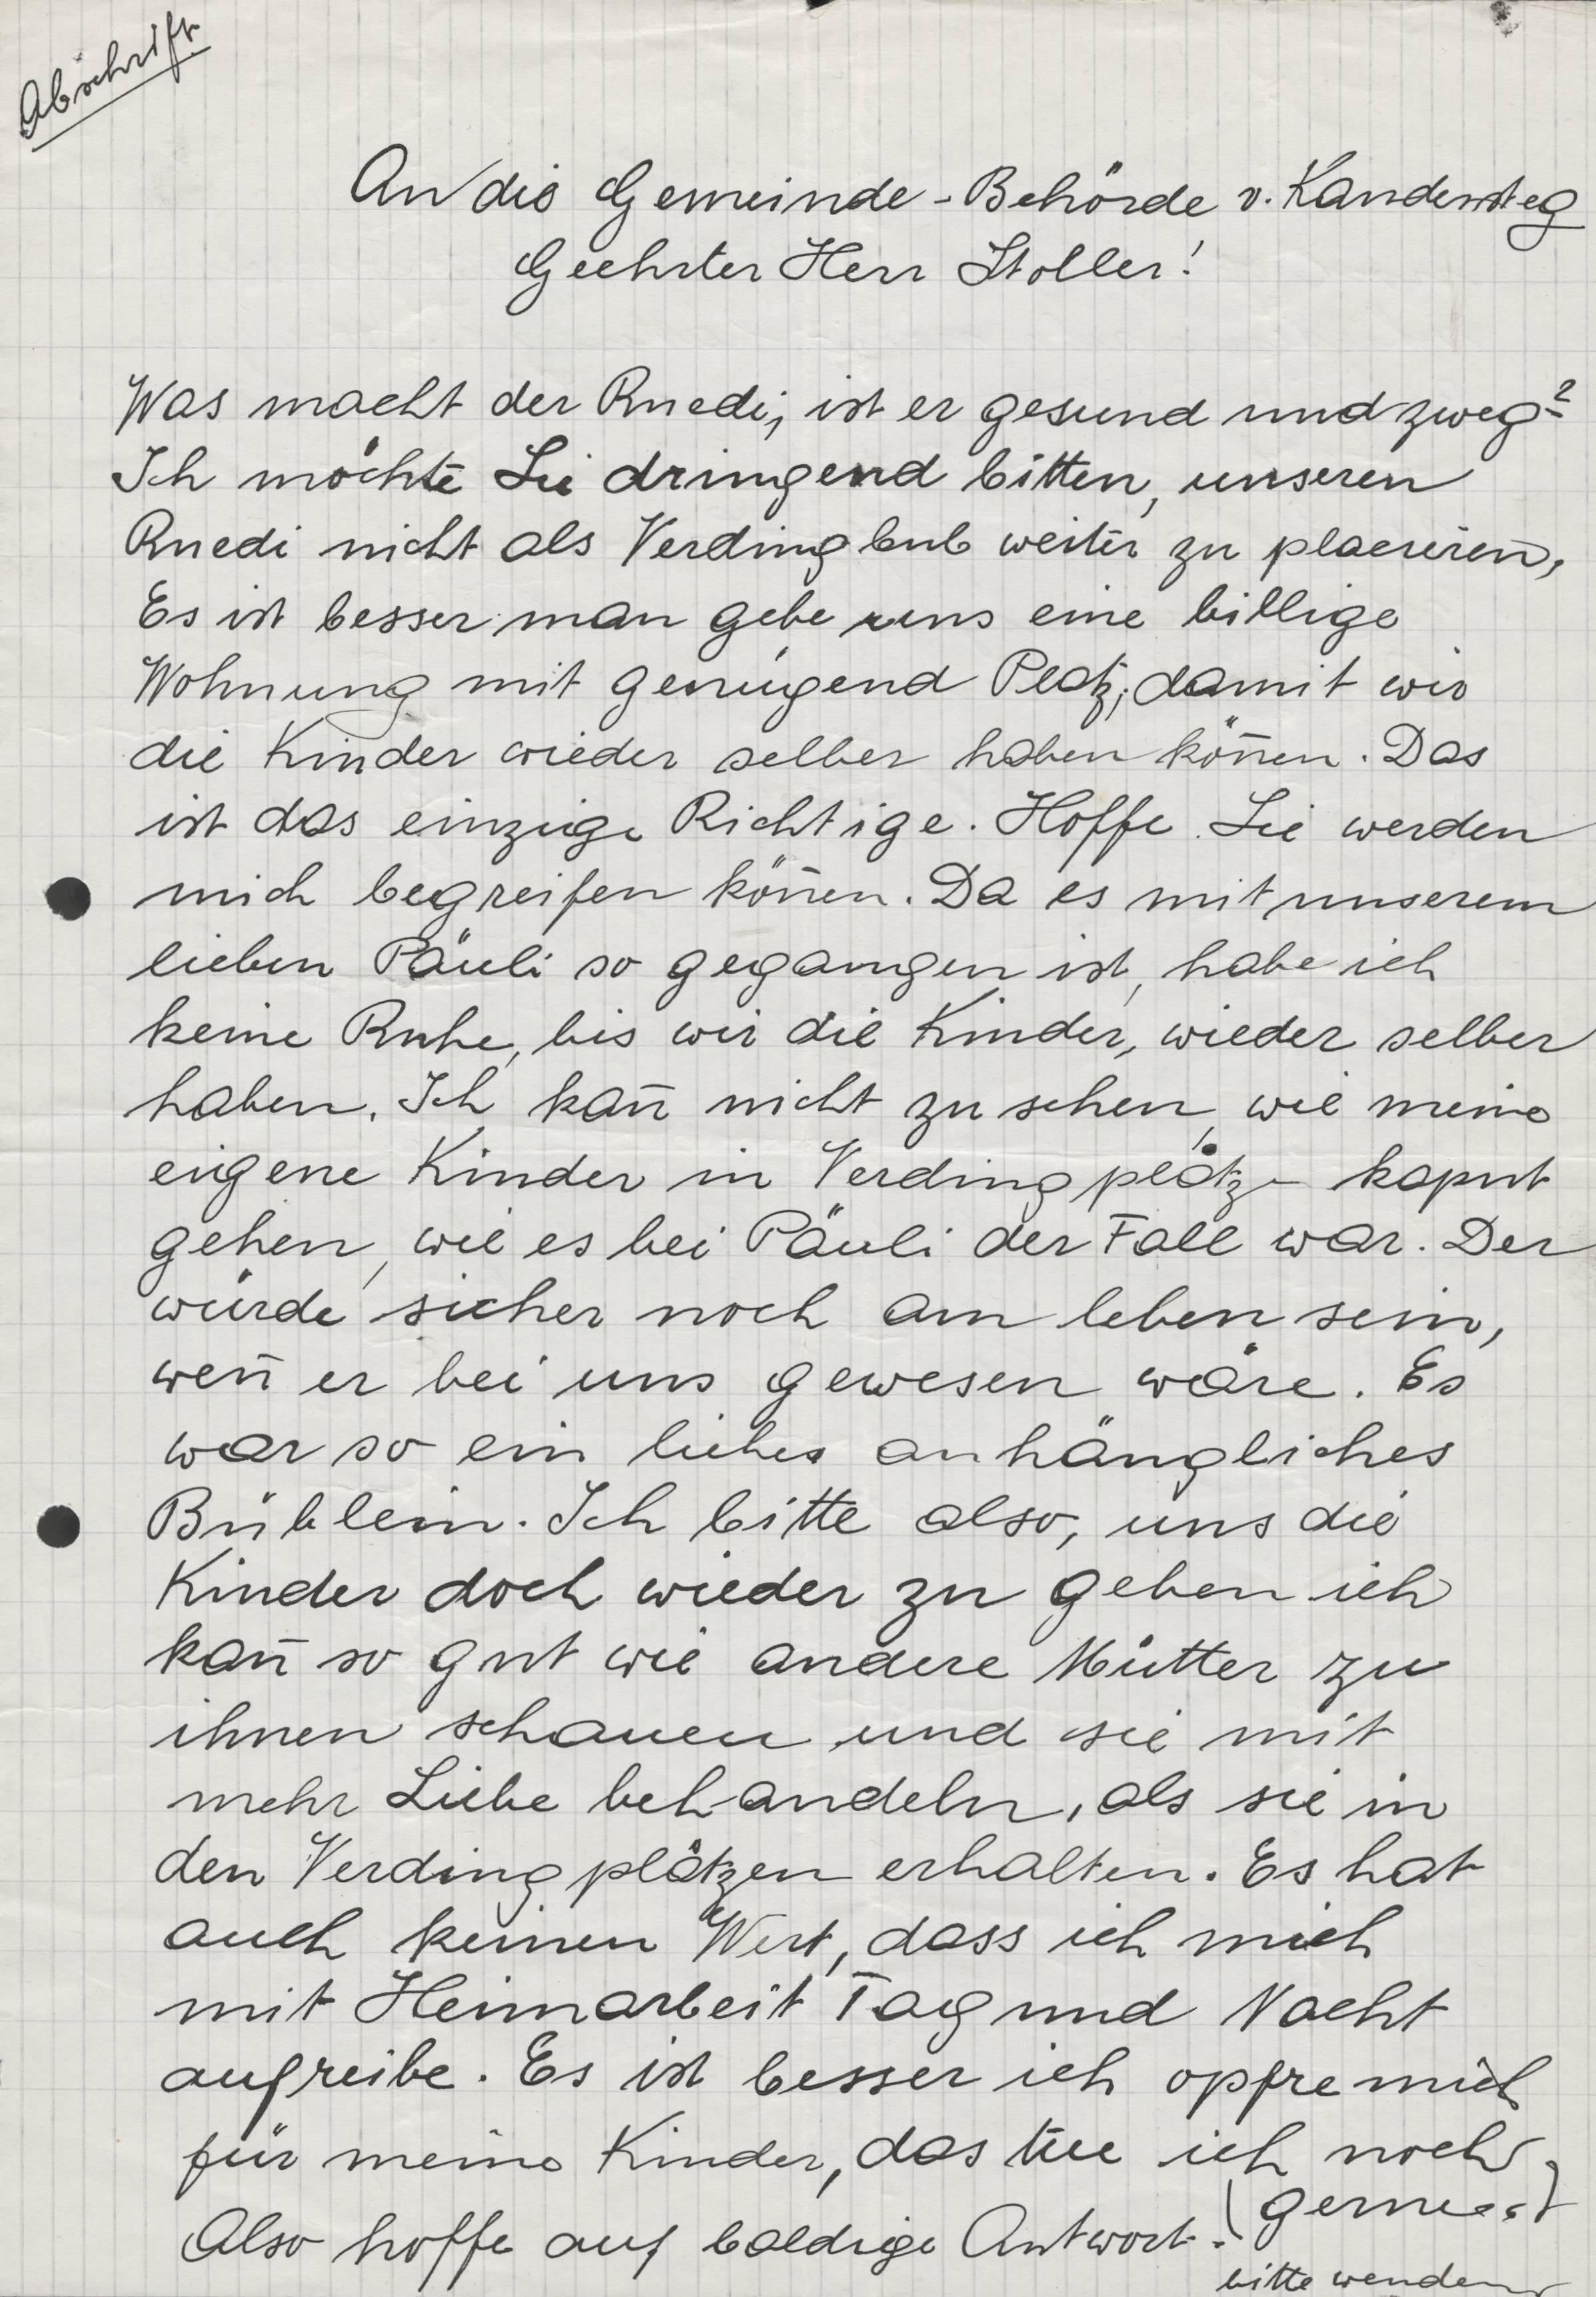 Abschrift
An die Gemeinde-Behörde v. Kandersteg
Geehrter Herr Stoller!
Was macht der Ruedi, ist er gesund und zweg?
Ich möchte Sie dringend bitten, unseren
Ruedi nicht als Verdingbub weiter zu placieren,
Es ist besser man gebe uns eine billige
Wohnung mit genügend Platz, damit wir
die Kinder wieder selber haben köñen. Das
ist das einzige Richtige. Hoffe Sie werden
mich begreifen köñen. Da es mit unserem
lieben Päuli so gegangen ist, habe ich
keine Ruhe, bis wir die Kinder, wieder selber
haben. Ich kañ nicht zu sehen, wie meine
eigene Kinder in Verdingplätze kaput
gehen, wie es bei Päuli der Fall war. Der
würde sicher noch am leben sein,
weñ er bei uns gewesen wäre. Es
war so ein liebes anhängliches
Büblein. Ich bitte also, uns die
Kinder doch wieder zu geben ich
kañ so gut wie andere Mütter zu
ihnen schauen und sie mit
mehr Liebe behandeln, als sie in
den Verdingplätzen erhalten. Es hat
auch keinen Wert, dass ich mich
mit Heimarbeit Tag und Nacht
aufreibe. Es ist besser ich opfre mich
für meine Kinder, das tue ich noch
gerne.
Also hoffe auf baldige Antwort.
bitte wenden